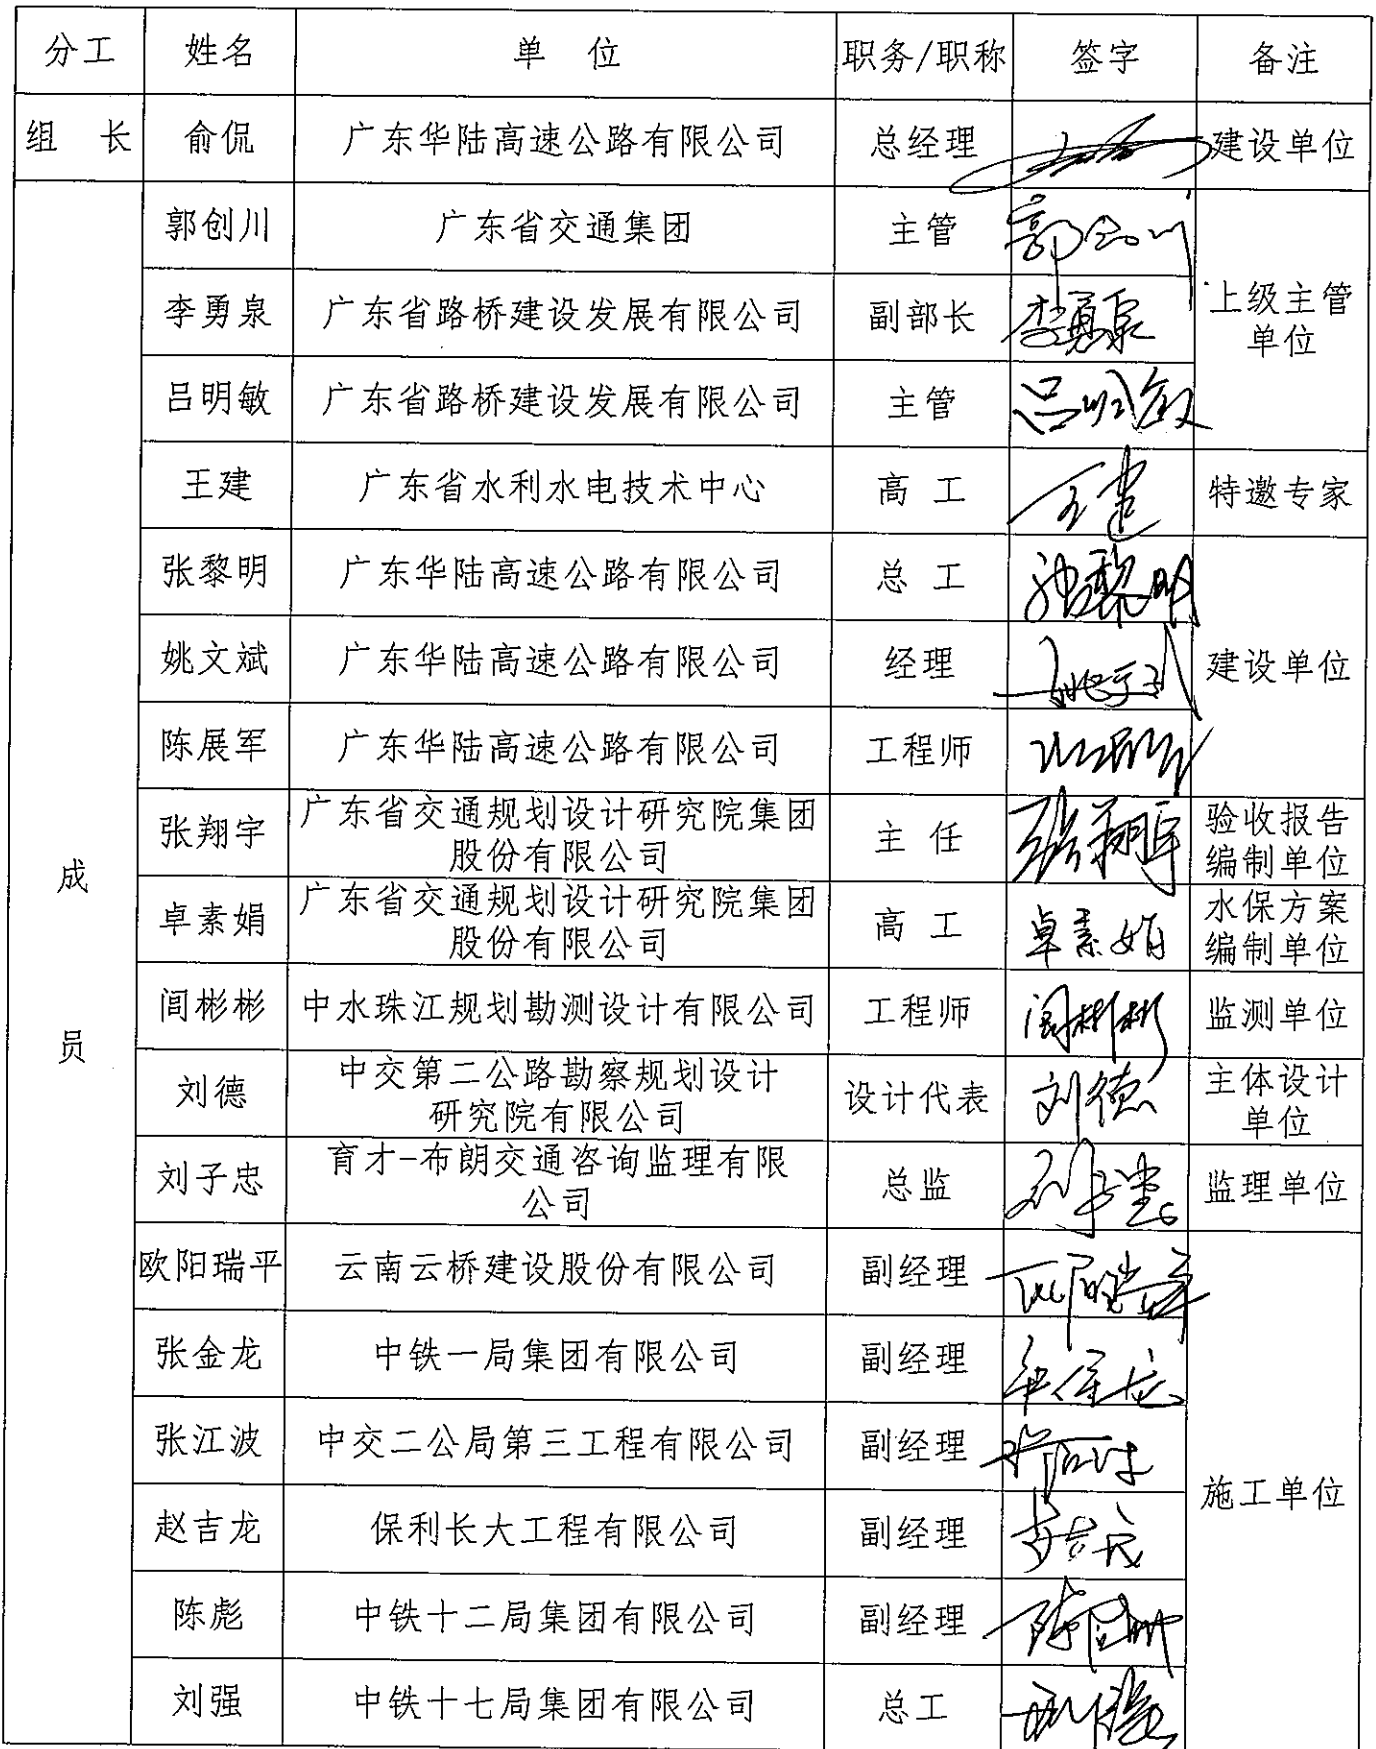 分工 姓名 单 位 职务/职称 签字 备注
组 长 俞侃 广东华陆高速公路有限公司 总经理 建设单位
郭创川 广东省交通集团 主管 郭创川
李勇泉 广东省路桥建设发展有限公司 副部长 李勇泉 上级主管
单位
吕明敏 广东省路桥建设发展有限公司 主管 吕明敏
王建 广东省水利水电技术中心 高 工 王建 特邀专家
张黎明 广东华陆高速公路有限公司 总 工 张黎明
姚文斌 广东华陆高速公路有限公司 经理 建设单位
陈展军 广东华陆高速公路有限公司 工程师
张翔宇 广东省交通规划设计研究院集团
股份有限公司 主 任 张翔宇 验收报告
编制单位
成
员
卓素娟 广东省交通规划设计研究院集团
股份有限公司 高 工 卓素娟 水保方案
编制单位
闾彬彬 中水珠江规划勘测设计有限公司 工程师 闾彬彬 监测单位
刘德 中交第二公路勘察规划设计
研究院有限公司 设计代表 刘德 主体设计
单位
刘子忠 育才-布朗交通咨询监理有限
公司 总监 监理单位
欧阳瑞平 云南云桥建设股份有限公司 副经理
张金龙 中铁一局集团有限公司 副经理
张江波 中交二公局第三工程有限公司 副经理 施工单位
赵吉龙 保利长大工程有限公司 副经理
陈彪 中铁十二局集团有限公司 副经理
刘强 中铁十七局集团有限公司 总工